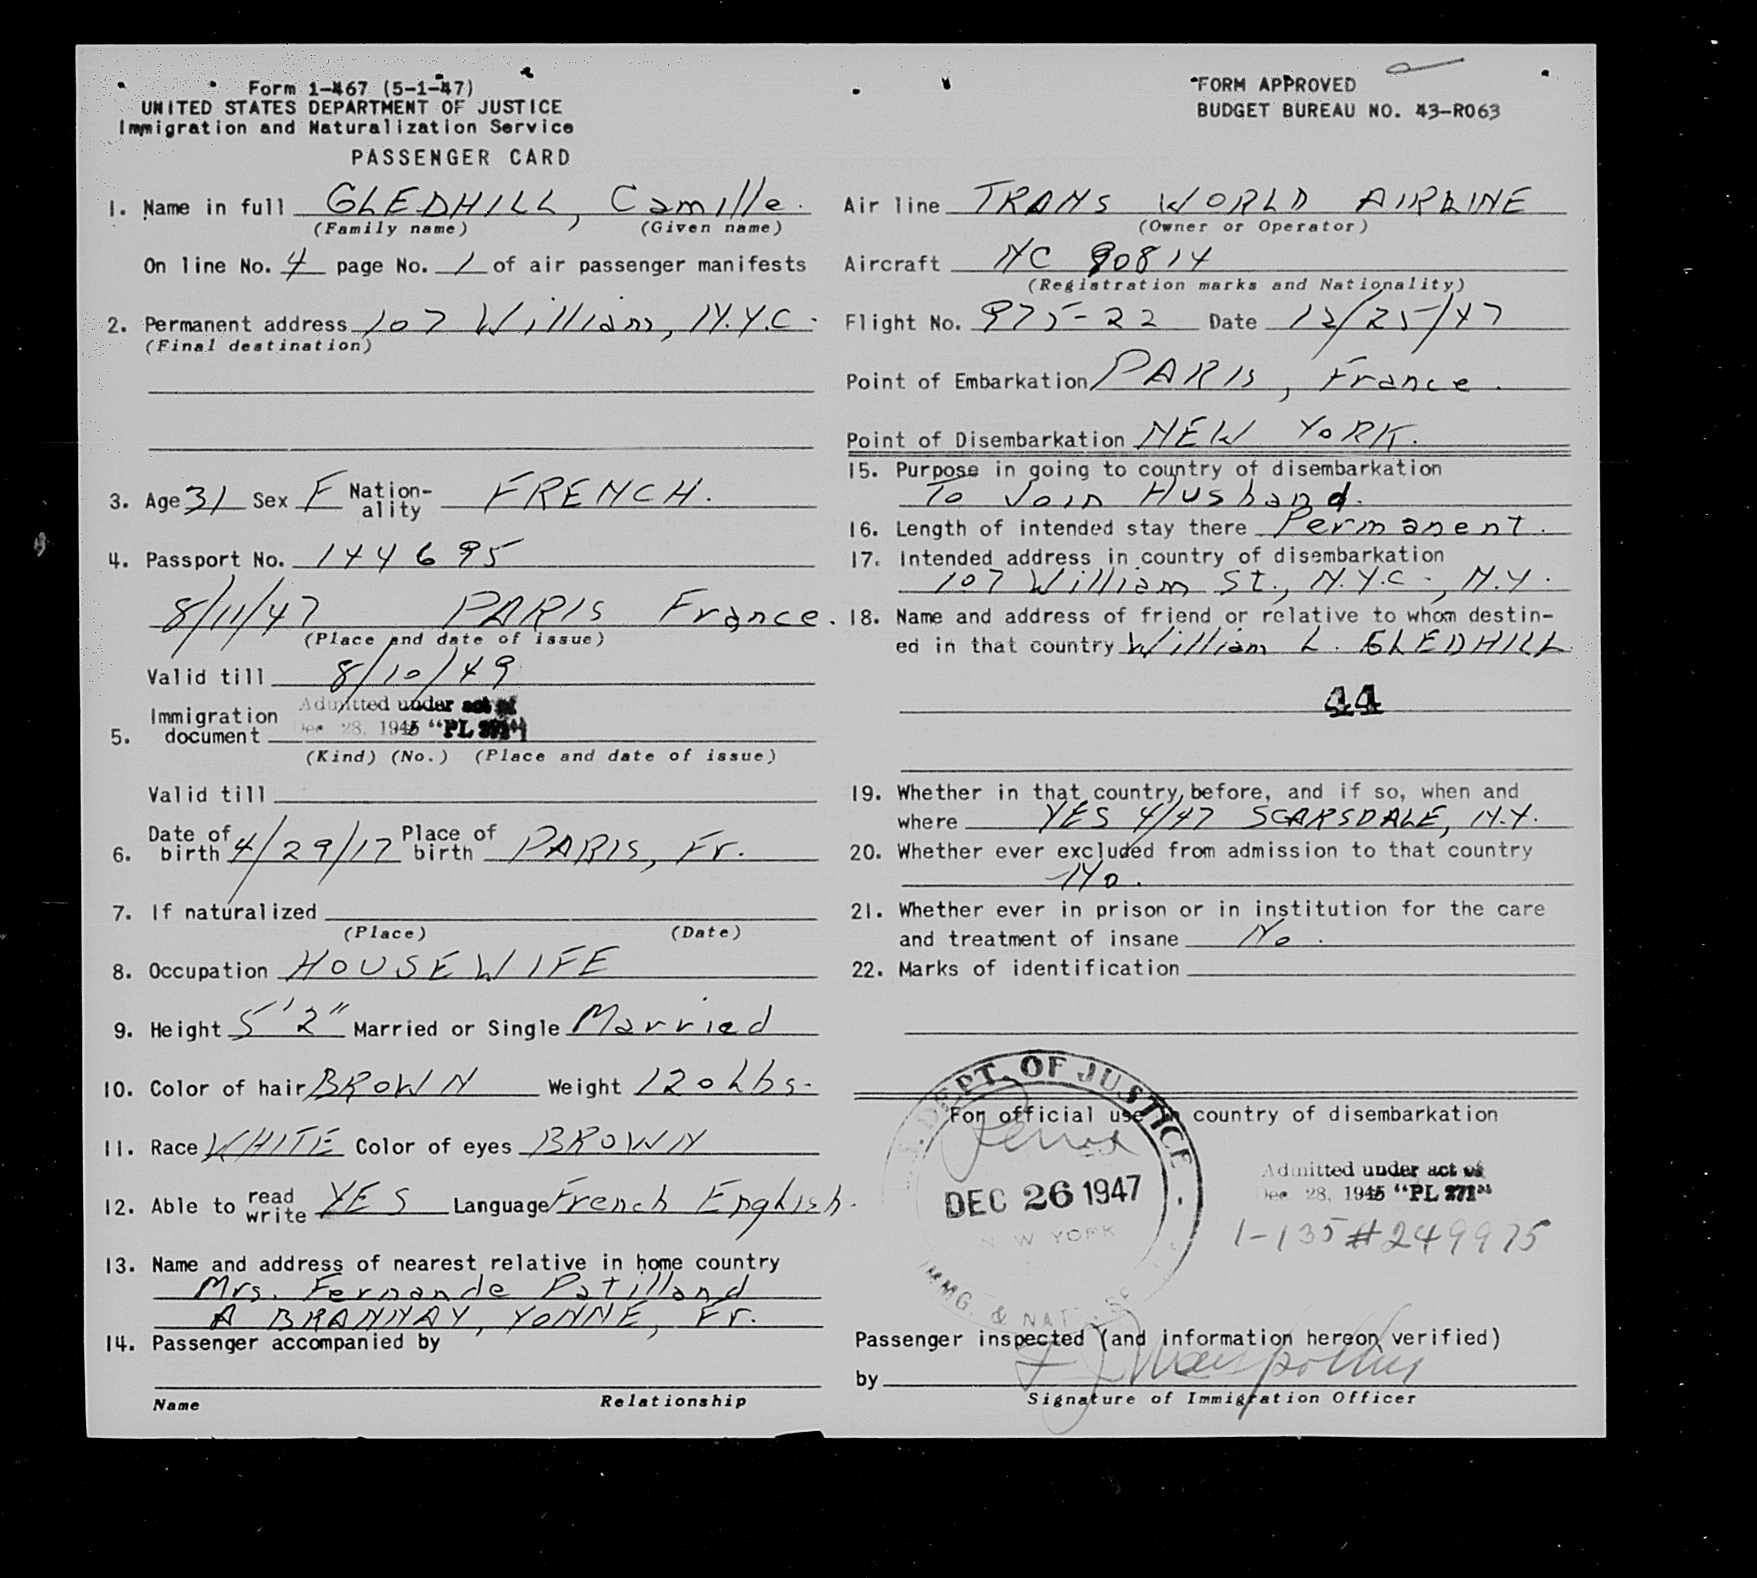 Form 1-467 (5-1-47)
UNITED STATES DEPARTMENT OF JUSTICE
Immigration and Naturalization Service
PASSENGER CARD
FORM APPROVED
BUDGET BUREAU NO. 43-R063
1. Name in full GLEDHILL, Camille.
(Family name) (Given name)
On line No. 4 page No. 1 of air passenger manifests
2. Permanent address 107 William, N.Y.C.
(Final destination)
3. Age 31 Sex F Nation-ality FRENCH.
4. Passport No. 144695
8/11/47 PARIS France.
(Place and date of issue)
Valid till 8/10/49
Admitted under act of
Dec 28, 1945 "PL 271"
5. Immigration document
(Kind) (No.) (Place and date of issue)
Valid till
6. Date of birth 4/29/17 Place of birth PARIS, Fr.
7. If naturalized
(Place) (Date)
8. Occupation HOUSEWIFE
9. Height 5'2" Married or Single Married
10. Color of hair BROWN Weight 120 Lbs.
11. Race WHITE Color of eyes BROWN
12. Able to read write YES Language French English.
13. Name and address of nearest relative in home country
Mrs. Fernande Patilland
A BRANNAY, YONNE, Fr.
14. Passenger accompanied by
Name Relationship
Air line TRANS WORLD AIRLINE
(Owner or Operator)
Aircraft NC 90814
(Registration marks and Nationality)
Flight No. 975-22 Date 12/25/47
Point of Embarkation PARIS, France.
Point of Disembarkation NEW YORK.
15. Purpose in going to country of disembarkation
To Join Husband.
16. Length of intended stay there Permanent.
17. Intended address in country of disembarkation
107 William St., N.Y.C., N.Y.
18. Name and address of friend or relative to whom destin-
ed in that country William L. GLEDHILL
44
19. Whether in that country before, and if so, when and
where YES 4/47 SCARSDALE, N.Y.
20. Whether ever excluded from admission to that country
No.
21. Whether ever in prison or in institution for the care
and treatment of insane No.
22. Marks of identification
For official use in country of disembarkation
DEPT. OF JUSTICE
DEC 26 1947
NEW YORK
IMMG. & NAT. SE
Admitted under act of
Dec 28, 1945 "PL 271"
1-135#249975
Passenger inspected (and information hereon verified)
by
Signature of Immigration Officer